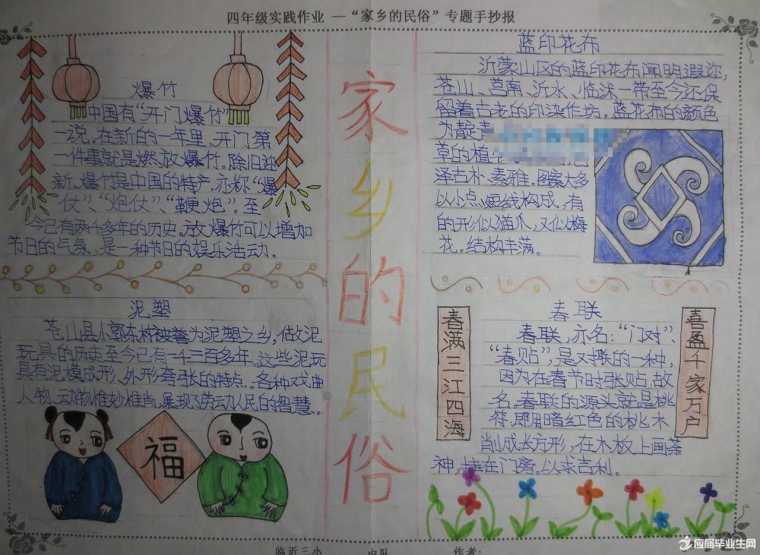 四年级实践作业 —“家乡的民俗”专题手抄报
爆竹
中国有“开门爆竹”
一说，在新的一年里，开门第
一件事就是燃放爆竹，除旧迎
新。爆竹是中国的特产，亦称“爆
仗”、“炮仗”、“鞭炮”。至
今己有两千多年的历史，放爆竹可以增加
节日的气氛，是一种节日的娱乐活动。
泥塑
苍山县小郭东村被誉为泥塑之乡，
玩具的历史至今已有一千三百多年，这些泥玩
具有泥模成形、外形夸张的特点，各种戏曲
人物、动物惟妙惟肖，展现劳动人民的智慧。
福
家乡的民俗
蓝印花布
沂蒙山区的蓝印花布闻明遐迩，
苍山、莒南、沂水、临沭一带至今还保
留着古老的印染作坊，蓝花布的颜色
为靛
草的植
泽古朴、素雅，图案大多
以小点、短线构成，有
的形似猫爪，又似梅
花，结构丰满。
春联
春满三江四海
春联，亦名：“门对”、
“春贴”，是对联的一种，
因为在春节时张贴，故
名。春联的源头就是桃
符，是用暗红色的桃木
削成长方形，在木板上画
神，挂在门旁，以求吉利。
喜盈千家万户
临沂三小
中队
作者：
应届毕业生网